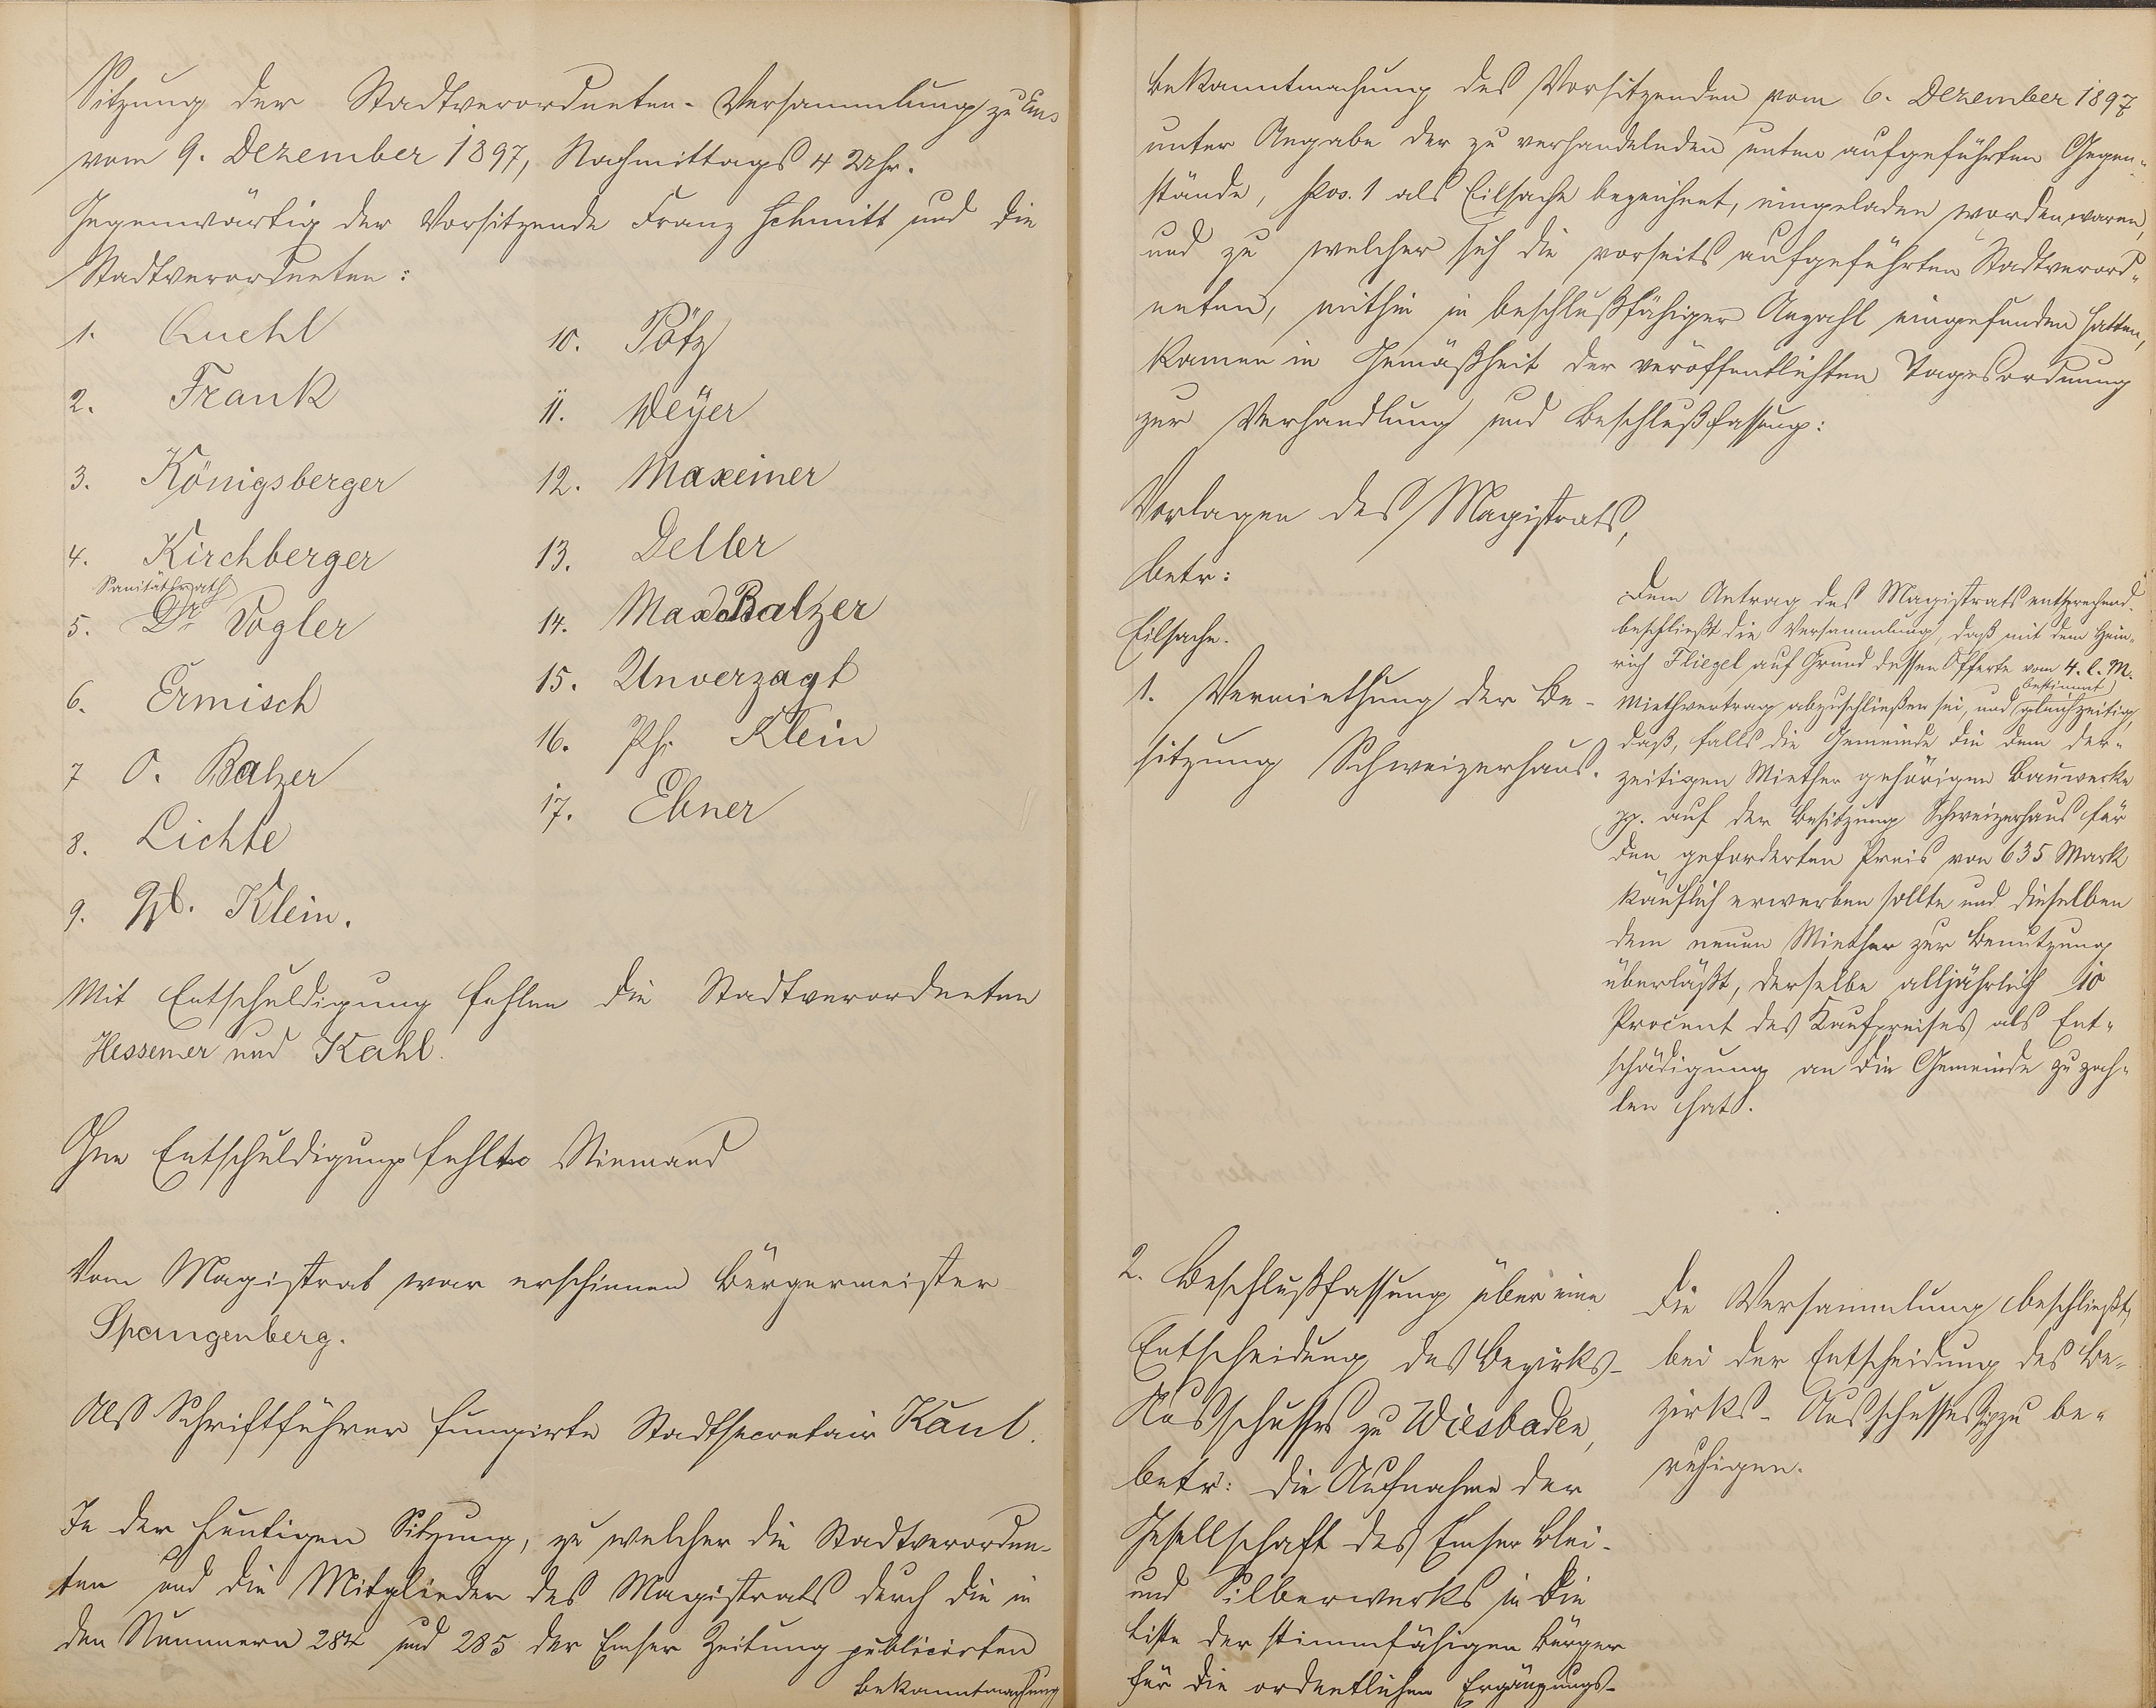 Sitzung der Stadtverordneten-Versammlung zu Ems
vom 9. Dezember 1897, Nachmittags 4 Uhr.
Gegenwärtig der Vorsitzende Franz Schmitt und die
Stadtverordneten:
1. Quehl
2. Frank
3. Königsberger
4. Kirchberger
Sanitätsrath
5. Dr Vogler
6. Ermisch
7 O. Balzer
8. Lichte
9. W. Klein.
10. Pötz
11. Weyer
12. Maxeiner
13. Deller
14. Max Balzer
15. Unverzagt
16. Ph. Klein
17. Ebner
Mit Entschuldigung fehlen die Stadtverordneten
Hessemer und Kahl.
Ohne Entschuldigung fehlte Niemand
Vom Magistrat war erschienen Bürgermeister
Spangenberg.
Als Schriftführer fungirte Stadtsecretair Kaul.
In der heutigen Sitzung, zu welcher die Stadtverordne-
ten und die Mitglieder des Magistrats durch die in
den Nummern 284 und 285 der Emser Zeitung publicirten
Bekanntmachung
Bekanntmachung des Vorsitzenden vom 6. Dezember 1897
unter Angabe der zu verhandelnden unten aufgeführten Gegen-
stände, Pos. 1 als Eilsache bezeichnet, eingeladen worden waren,
und zu welcher sich die vorseits aufgeführten Stadtverord-
neten, mithin in beschlußfähiger Anzahl eingefunden hatten,
kamen in Gemäßheit der veröffentlichten Tagesordnung
zur Verhandlung und Beschlußfassung:
Vorlagen des Magistrats,
betr:
Eilsache.
1. Vermiethung der Be-
sitzung Schweizerhaus.
Dem Antrag des Magistrats entsprechend
beschließt die Versammlung, daß mit dem Hein-
rich Fliegel auf Grund dessen Offerte vom 4. l. M.
bestimmt
Miethvertrag abzuschließen sei, und gleichzeitig,
daß, falls die Gemeinde die dem der-
zeitigen Miether gehörigen Bauwerke
pp. auf der Besitzung Schweizerhaus für
den geforderten Preis von 635 Mark
käuflich erwerben sollte und dieselben
dem neuen Miether zur Benutzung
überläßt, derselbe alljährlich 10
Procent des Kaufpreises als Ent-
schädigung an die Gemeinde zu zah-
len hat.
2. Beschlußfassung über eine
Entscheidung des Bezirks-
Ausschusses zu Wiesbaden,
betr: die Aufnahme der
Gesellschaft des Emser Blei-
und Silberwerks in die
Liste der stimmfähigen Bürger
für die ordentlichen Ergänzungs-
Die Versammlung beschließt,
bei der Entscheidung des Be-
zirks-Ausschusses sich zu be-
ruhigen.